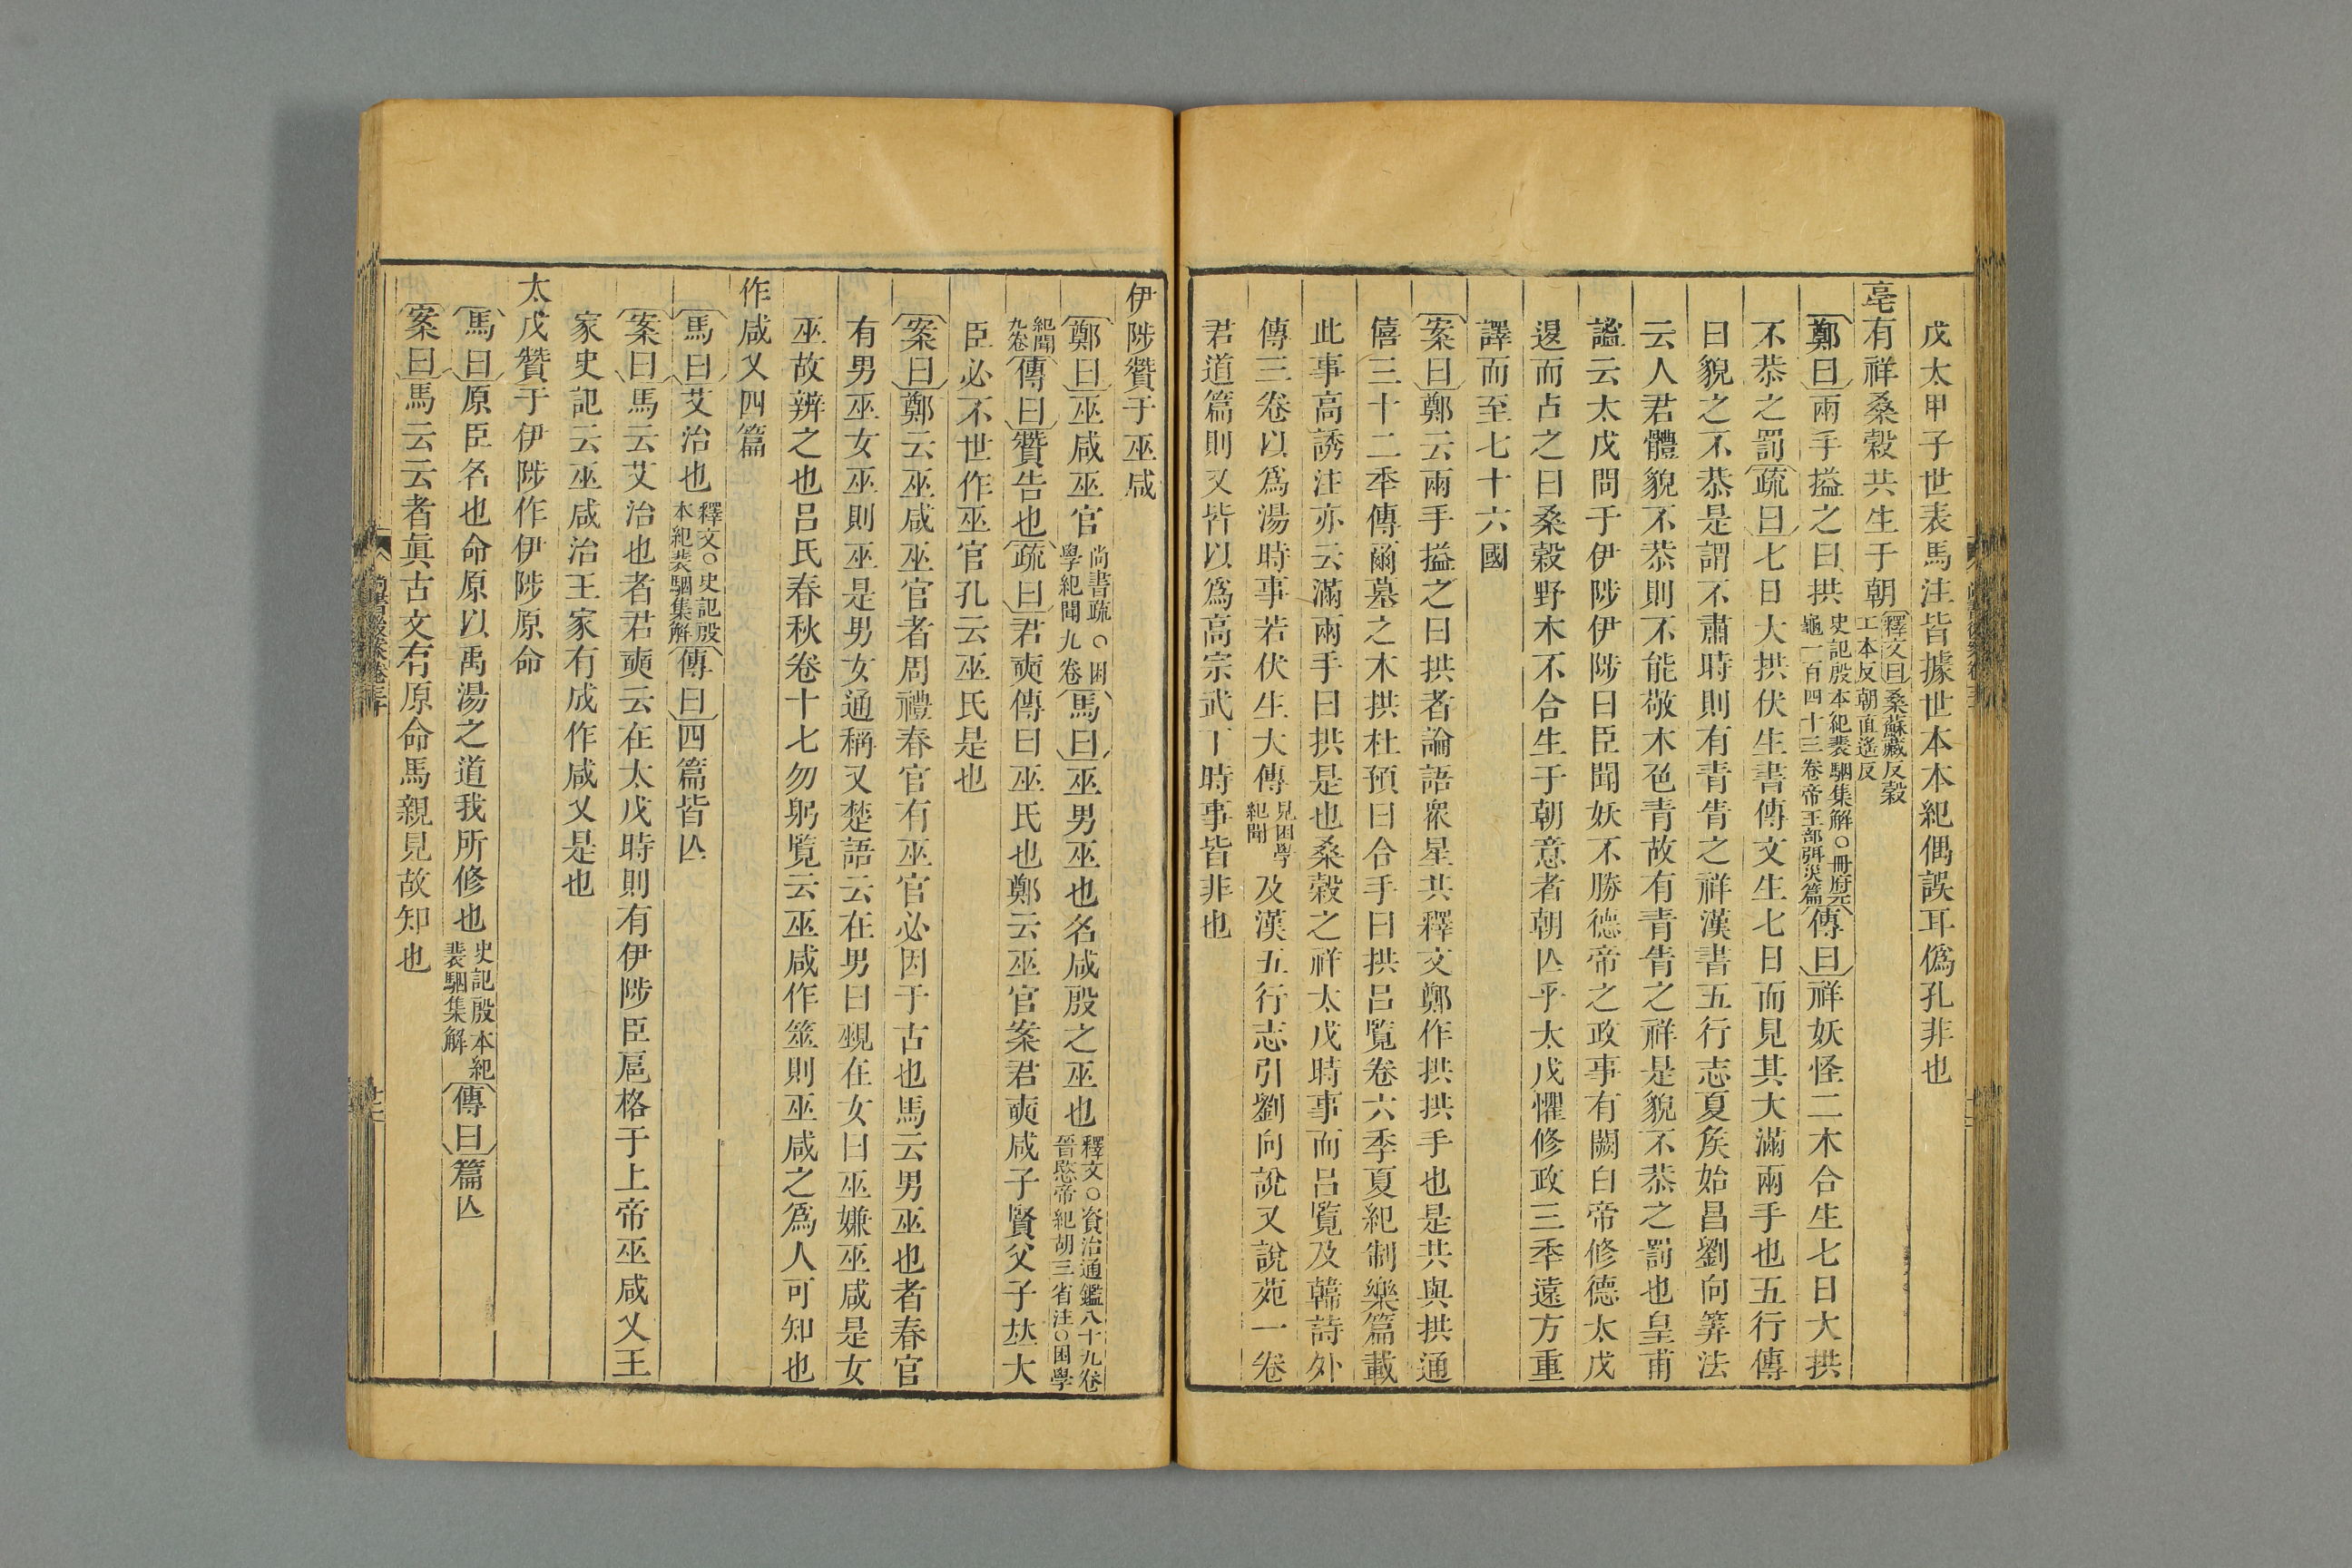 戊太甲子世表馬注皆據世本本紀偶誤耳僞孔非也
亳有祥桑穀共生于朝釋文曰桑蘇藏反穀工木反朝直遙反
鄭曰兩手搤之曰拱史記殷本紀裴駰集解○冊府元龜一百四十三卷帝王部弭災篇傳曰祥妖怪二木合生七日大拱
不恭之罰疏曰七日大拱伏生書傳文生七日而見其大滿兩手也五行傳
曰貌之不恭是謂不肅時則有青眚之祥漢書五行志夏矦始昌劉向筭法
云人君體貌不恭則不能敬木色青故有青眚之祥是貌不恭之罰也皇甫
謐云太戊問于伊陟伊陟曰臣聞妖不勝德帝之政事有闕白帝修德太戊
退而占之曰桑穀野木不合生于朝意者朝亾乎太戊懼修政三季遠方重
譯而至七十六國
案曰鄭云兩手搤之曰拱者論語衆星共釋文鄭作拱拱手也是共與拱通
僖三十二秊傳爾墓之木拱杜預曰合手曰拱呂覽卷六季夏紀制樂篇載
此事高誘注亦云滿兩手曰拱是也桑穀之祥太戊時事而呂覽及韓詩外
傳三卷以爲湯時事若伏生大傳見困學紀聞及漢五行志引劉向說又說苑一卷
君道篇則又皆以爲高宗武丁時事皆非也
伊陟贊于巫咸
鄭曰巫咸巫官尚書疏○困學紀聞九卷馬曰巫男巫也名咸殷之巫也釋文○資治通鑑八十九卷晉愍帝紀胡三省注○困學
紀聞九卷傳曰贊告也疏曰君奭傳曰巫氏也鄭云巫官案君奭咸子賢父子竝大
臣必不世作巫官孔云巫氏是也
案曰鄭云巫咸巫官者周禮春官有巫官必因于古也馬云男巫也者春官
有男巫女巫則巫是男女通稱又楚語云在男曰覡在女曰巫嫌巫咸是女
巫故辨之也呂氏春秋卷十七勿躬覽云巫咸作筮則巫咸之爲人可知也
作咸乂四篇
馬曰艾治也釋文○史記殷本紀裴駰集解傳曰四篇皆亾
案曰馬云艾治也者君奭云在太戊時則有伊陟臣扈格于上帝巫咸乂王
家史記云巫咸治王家有成作咸乂是也
太戊贊于伊陟作伊陟原命
馬曰原臣名也命原以禹湯之道我所修也史記殷本紀裴駰集解傳曰篇亾
案曰馬云云者眞古文有原命馬親見故知也